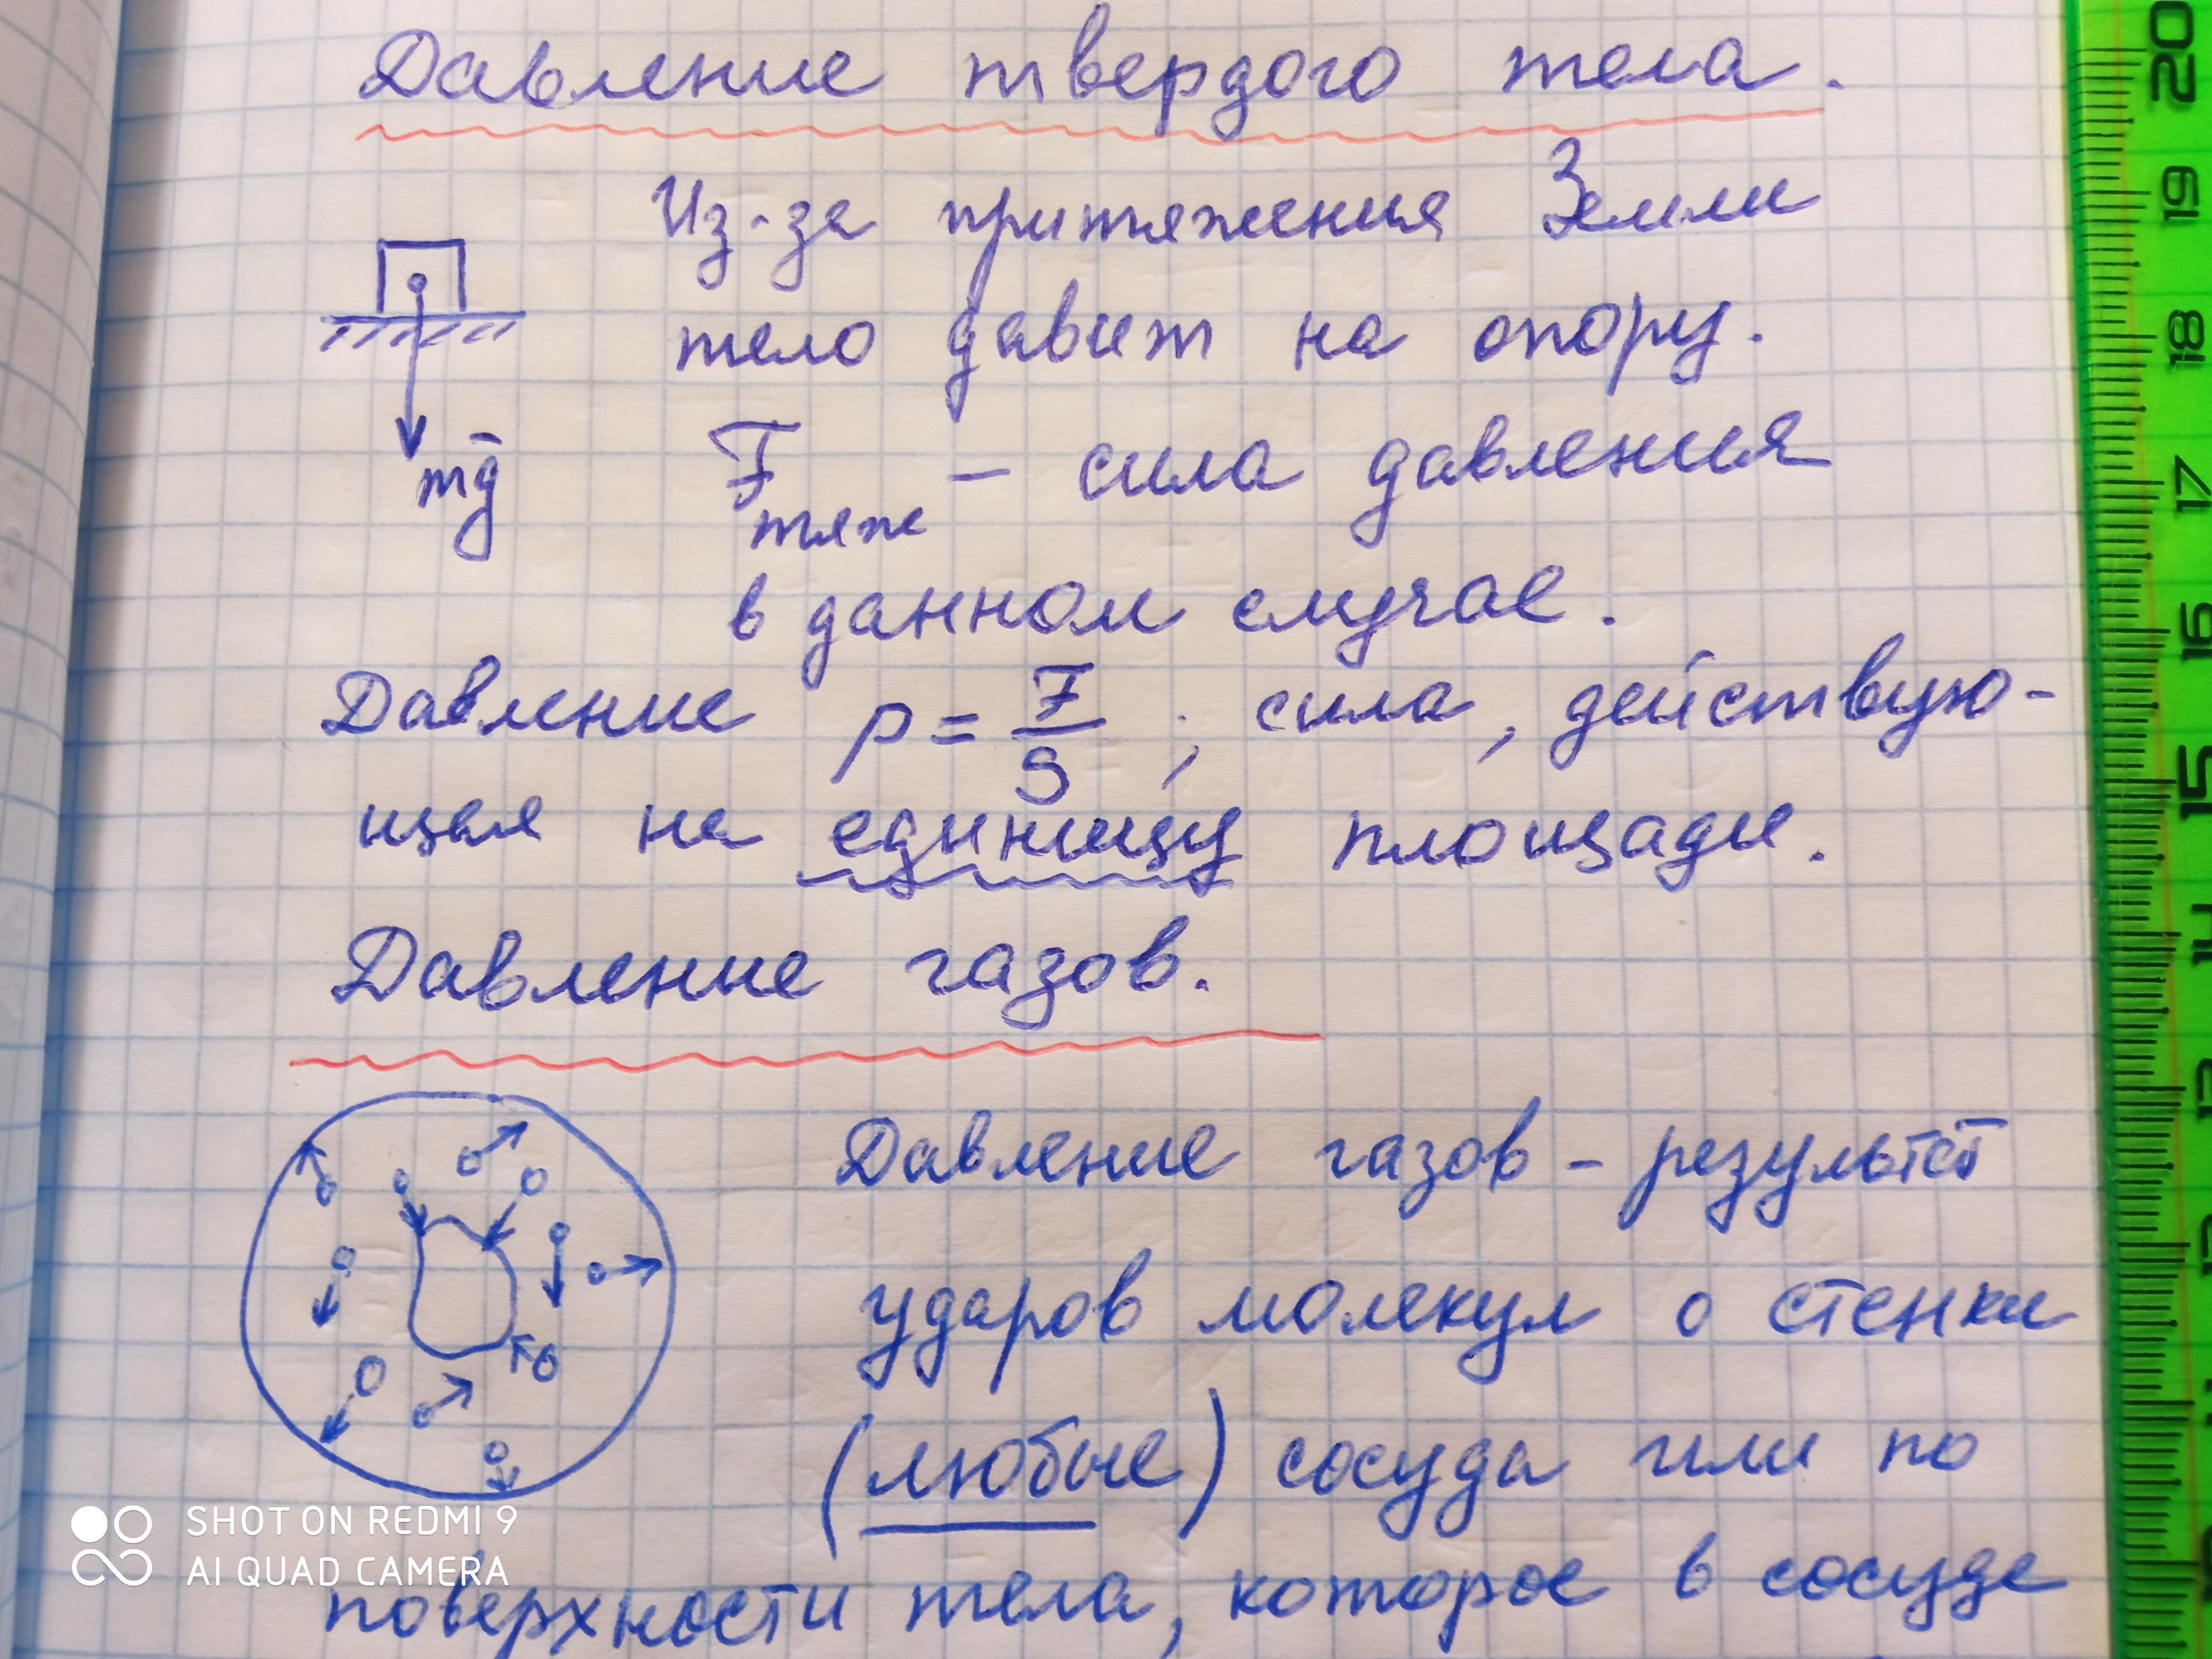 Давление твердого тела.
Из-за притяжения Земли
тело давит на опору.
mg̅
F̅тяж – сила давления
в данном случае.
Давление p = F/S ; сила, действую-
щая на единицу площади.
Давление газов.
Давление газов – результат
ударов молекул о стенки
(любые) сосуда или по
поверхности тела, которое в сосуде
SHOT ON REDMI 9
AI QUAD CAMERA
20
19
18
17
16
15
14
13
12